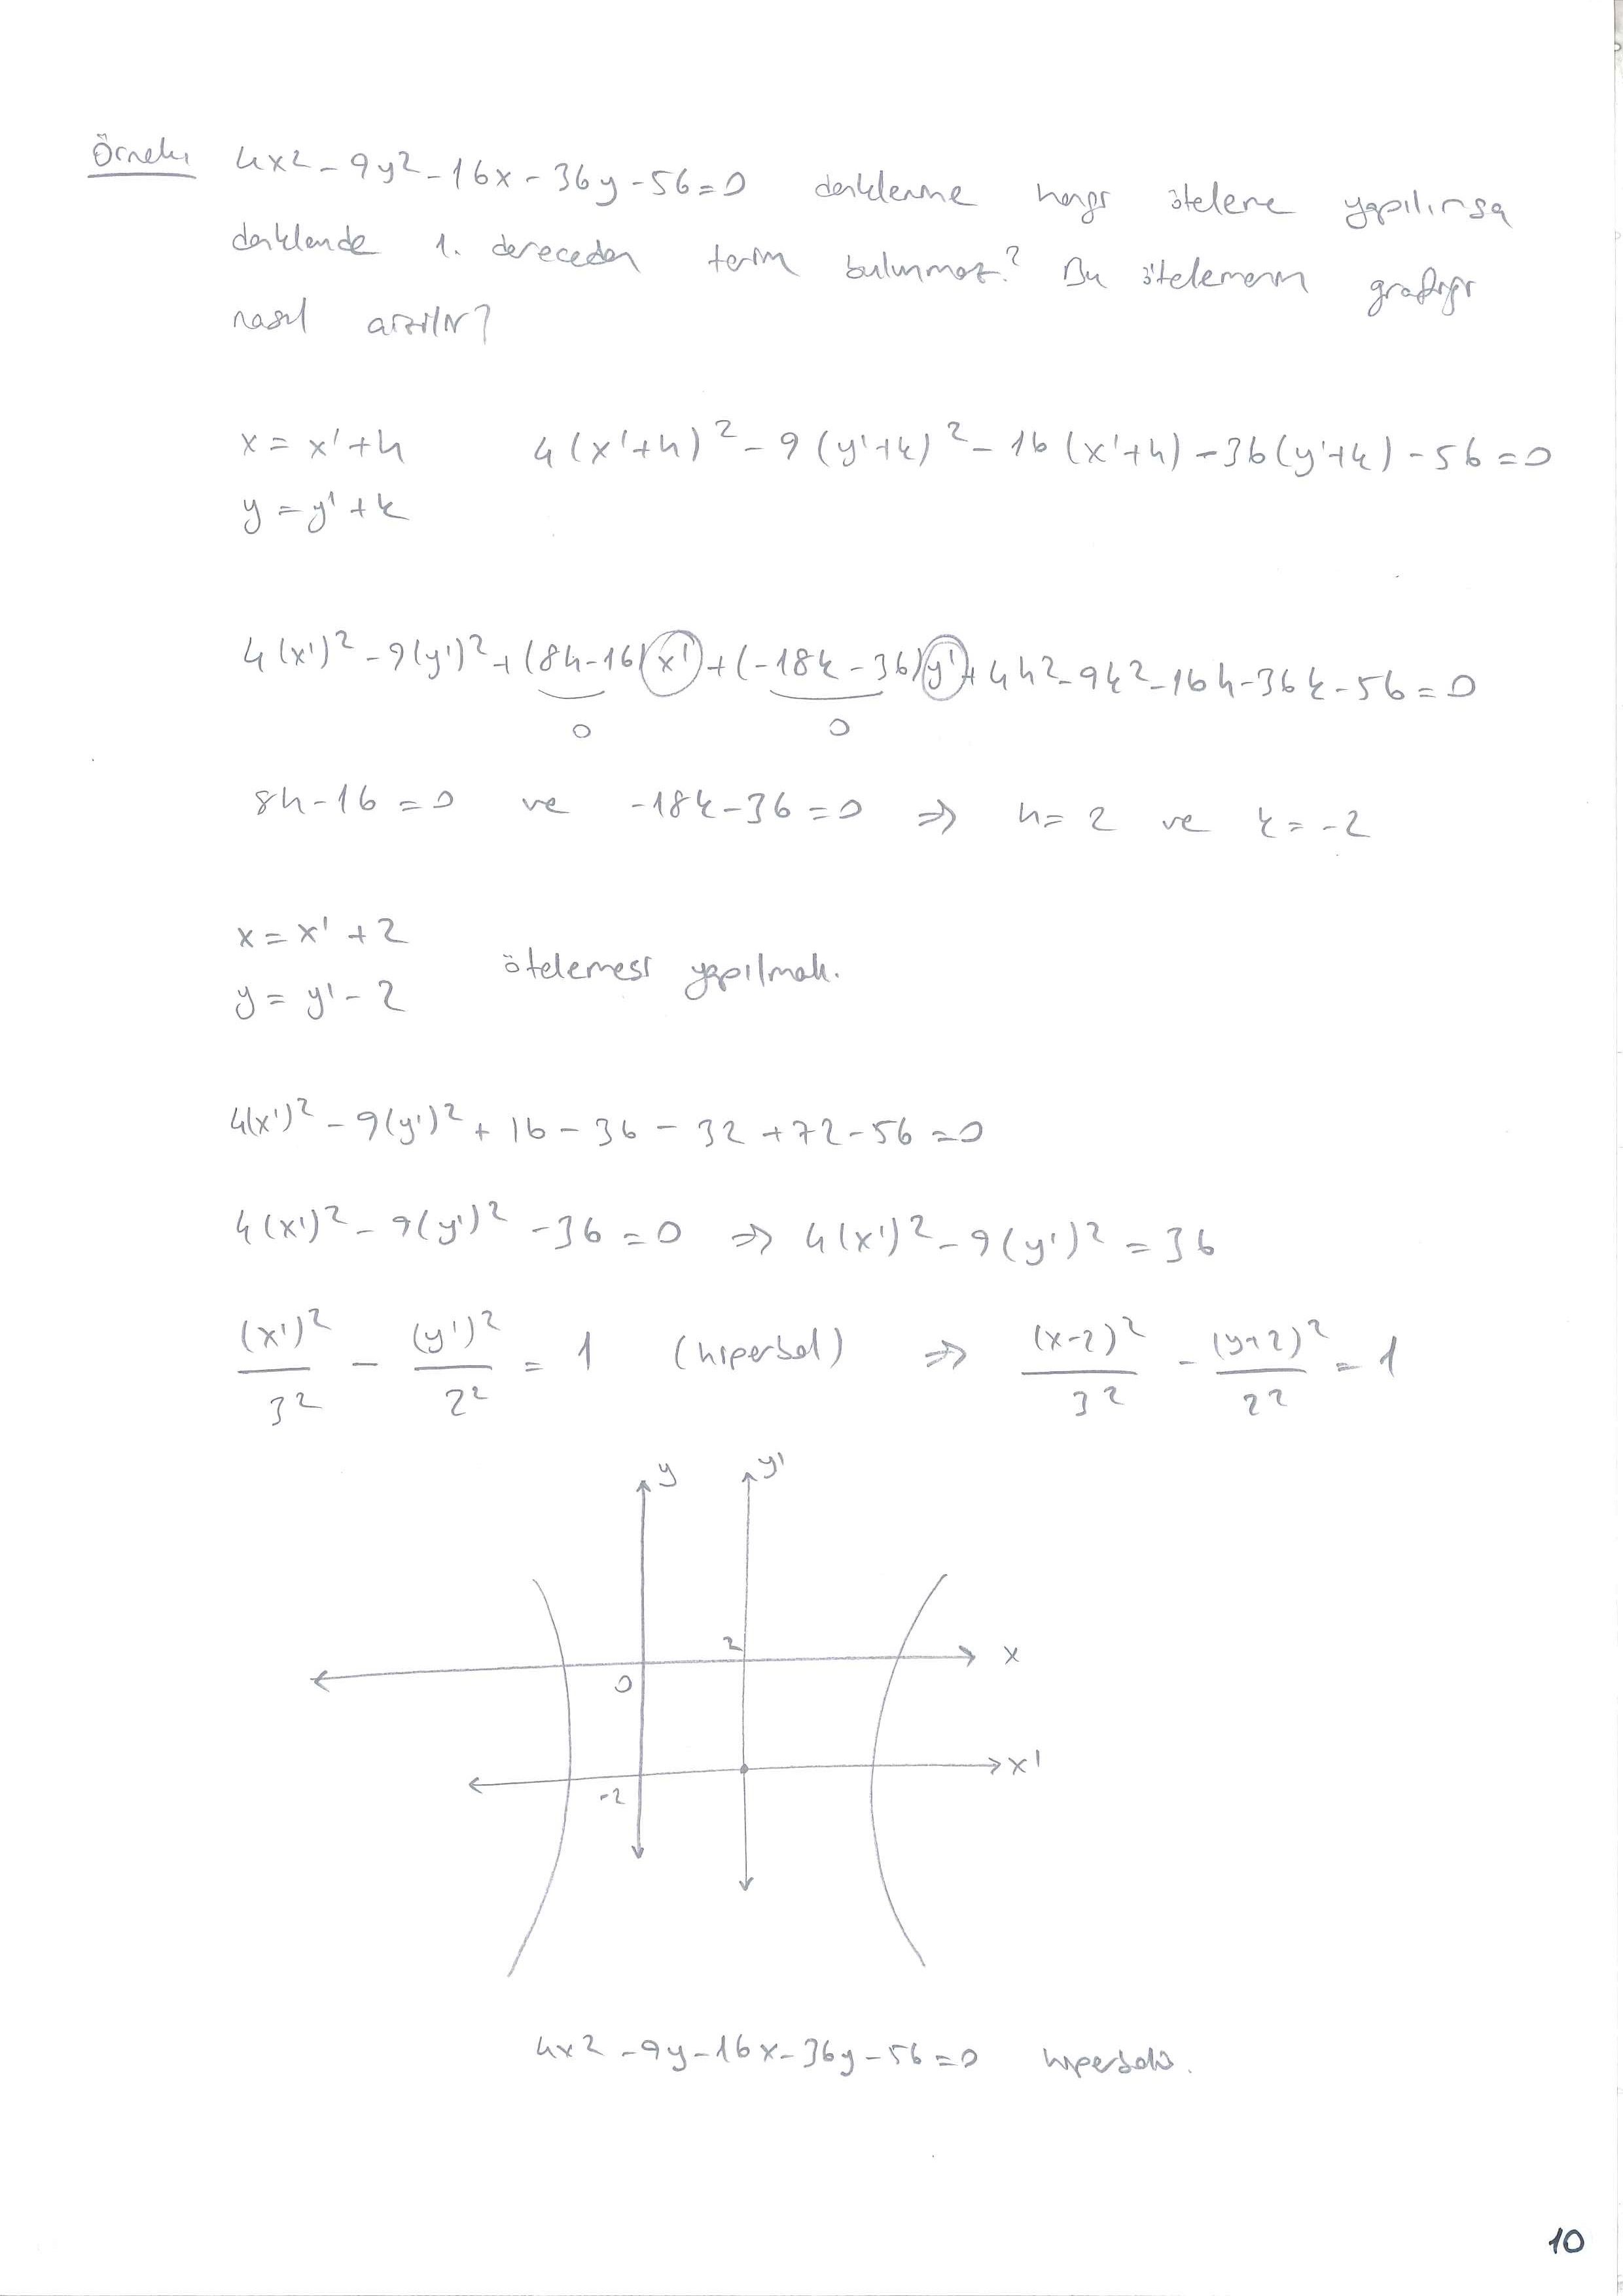 Örnek 4x² - 9y² - 16x - 36y - 56 = 0 denklemine hangi öteleme yapılırsa
denklemde 1. dereceden terim bulunmaz? Bu ötelemenin grafiği
nasıl çizilir?
x = x' + h 4(x'+h)² - 9(y'+k)² - 16(x'+h) - 36(y'+k) - 56 = 0
y = y' + k
4(x')² - 9(y')² + (8h-16)x' + (-18k-36)y' + 4h² - 9k² - 16h - 36k - 56 = 0
0 0
8h - 16 = 0 ve -18k - 36 = 0 ⇒ h = 2 ve k = -2
x = x' + 2
ötelemesi yapılmalı.
y = y' - 2
4(x')² - 9(y')² + 16 - 36 - 32 + 72 - 56 = 0
4(x')² - 9(y')² - 36 = 0 ⇒ 4(x')² - 9(y')² = 36
(x')²/3² - (y')²/2² = 1 (hiperbol) ⇒ (x-2)²/3² - (y+2)²/2² = 1
y y'
2 x
0
x'
-2
4x² - 9y - 16x - 36y - 56 = 0 hiperbolü.
10